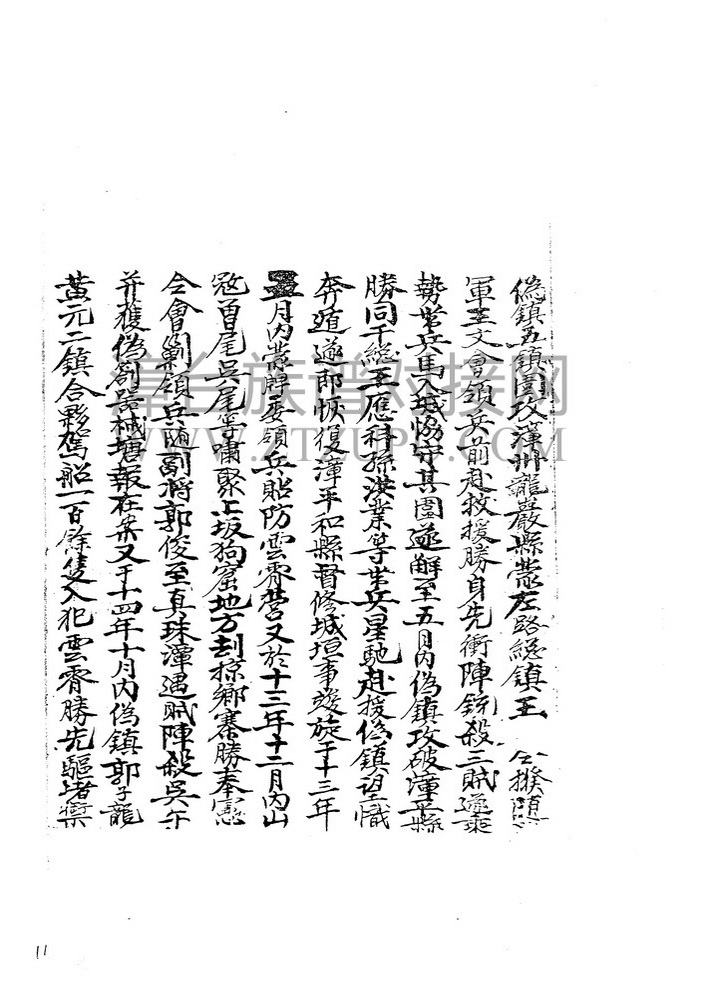 偽鎮五鎮圍攻漳州龍巖縣蒙左路總鎮王 公撥隨
軍王文會領兵前赴救援勝身先衝陣銃殺三賊遂乘
勢帶兵馬入城協守其圍遂解至五月內偽鎮攻破漳平縣
勝同千總王應科孫洪業等帶兵星馳赴援偽鎮望懺
奔遁遂即恢復漳平和縣督修城垣事竣旋于十三年
五月內蒙牌委領兵貼防雲霄營又於十三年十二月內山
寇曾尾吳尾等嘯聚上坂狗窟地方刦掠鄉寨勝奉憲
令會剿領兵随副將郭俊至真珠潭遇賊陣殺吳午
并獲偽劄器械塘報在案又于十四年十月內偽鎮郭子龍
黃元二鎮合夥駕船一百餘隻入犯雲霄勝先驅堵禦
漳台族谱对接网
WWW.ZTZUPU.COM
11